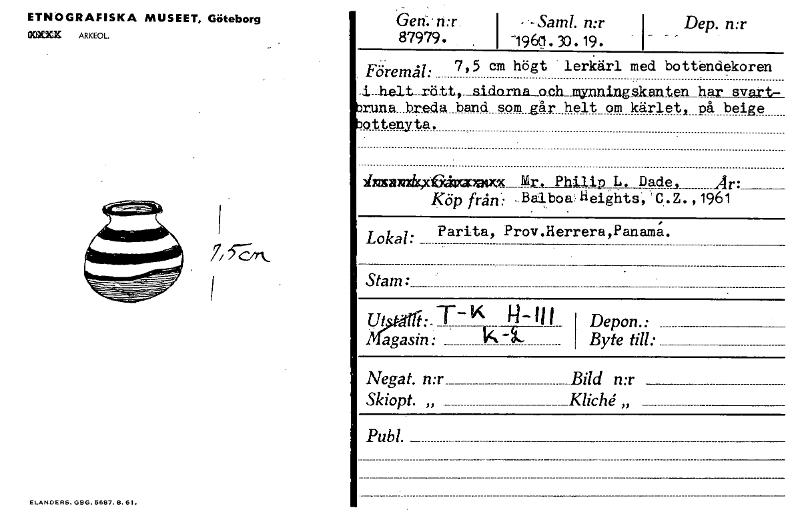 ETNOGRAFISKA MUSEET, Göteborg
ARKEOL.
7,5cm
ELANDERS. GBG. 5687. 8. 61.
Gen. n:r Saml. n:r Dep. n:r
87979. 1960.30.19.
Föremål: 7,5 cm högt lerkärl med bottendekoren
i helt rött, sidorna och mynningskanten har svart-
bruna breda band som går helt om kärlet, på beige
bottenyta.
Mr. Philip L. Dade, År:
Köp från: Balboa Heights, C.Z.,1961
Lokal: Parita, Prov.Herrera,Panamá.
Stam:
Utställt: T-K H-III Depon.:
Magasin: K-2 Byte till:
Negat. n:r Bild n:r
Skiopt. „ Kliché „
Publ.